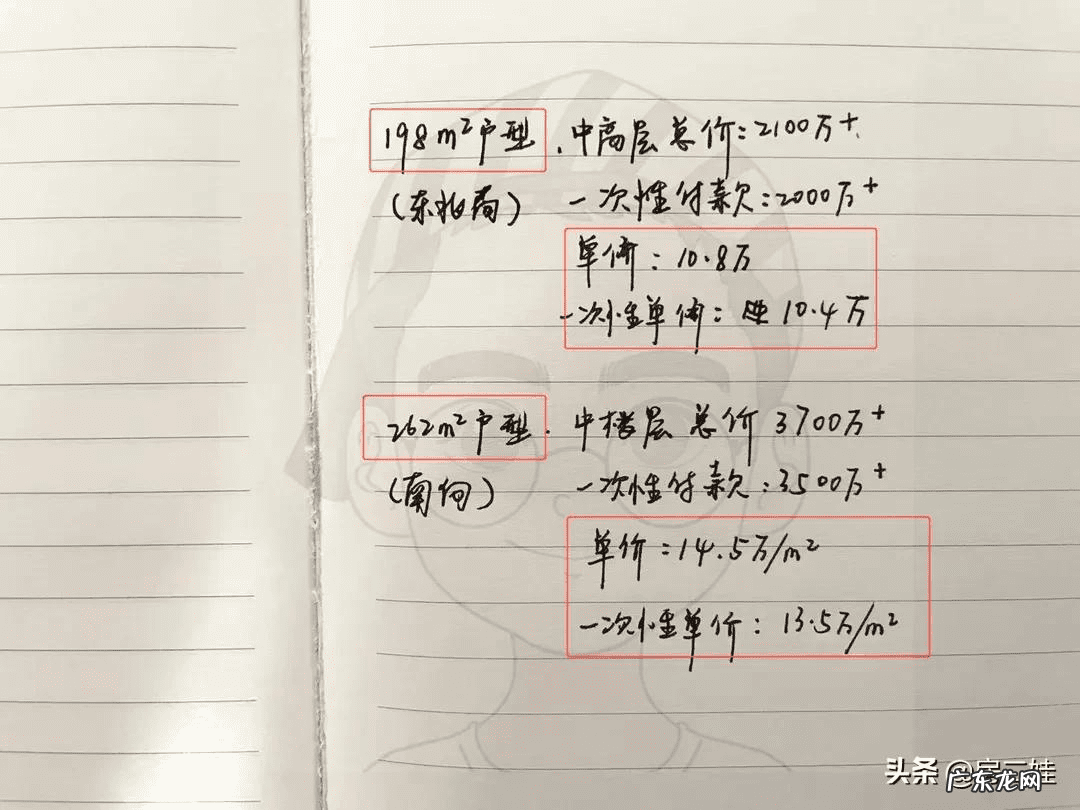 198m²户型.中高层总价:2100万+.
(东北向) 一次性付款:2000万+
单价:10.8万
一次性单价: 10.4万
262m²户型.中楼层总价3700万+
(南向) 一次性付款:3500万+
单价:14.5万/m²
一次性单价:13.5万/m²
头条 @
广东龙网